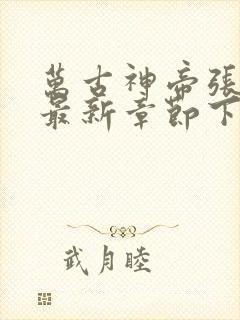 萬古神帝張
最新章節下
武月睦